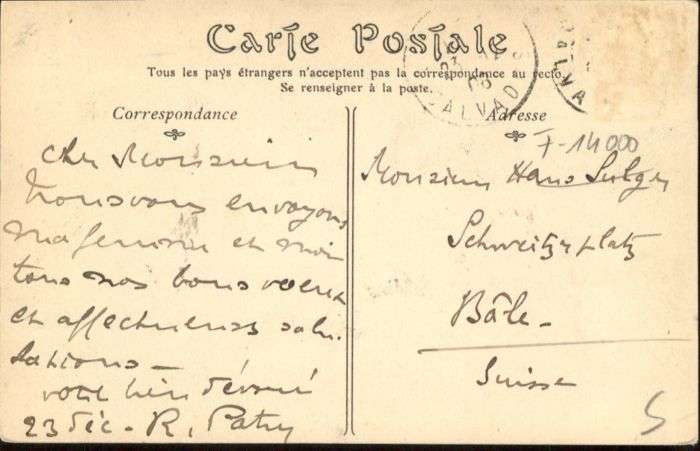 Carte Postale
Tous les pays étrangers n'acceptent pas la correspondance au recto.
Se renseigner à la poste.
Correspondance
Cher Monsieur
Nous vous envoyons
ma femme et moi
tous nos bons voeux
et affectueuses salu
tations—
votre bien dévoué
23 déc- R. Patry
Adresse
7-14000
Monsieur Hans
Schweitzerplatz
Bâle-
Suisse
CALVAD
CALVA